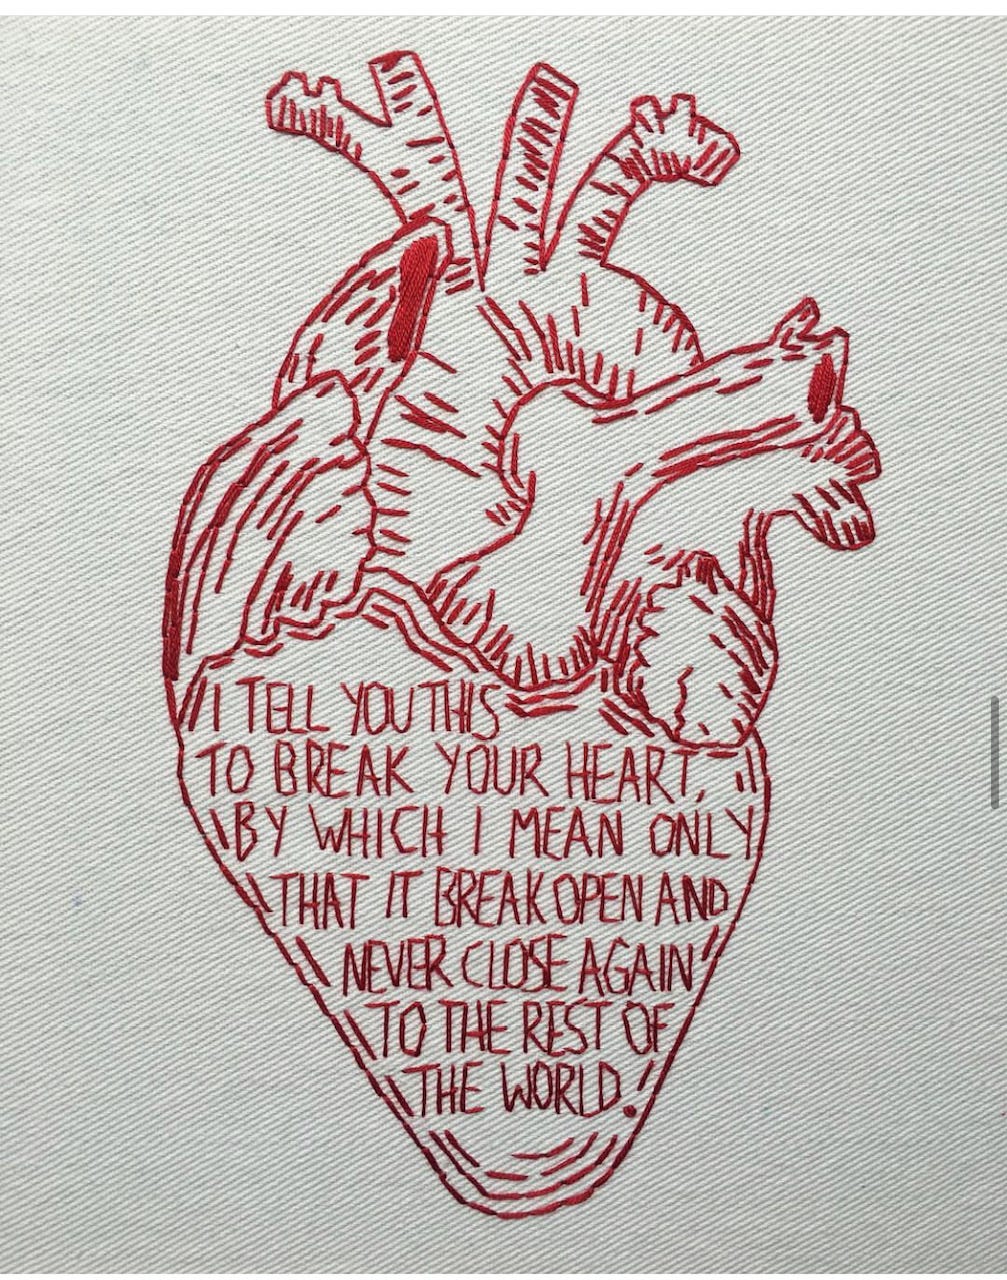 I TELL YOU THIS
TO BREAK YOUR HEART,
BY WHICH I MEAN ONLY
THAT IT BREAK OPEN AND
NEVER CLOSE AGAIN
TO THE REST OF
THE WORLD.